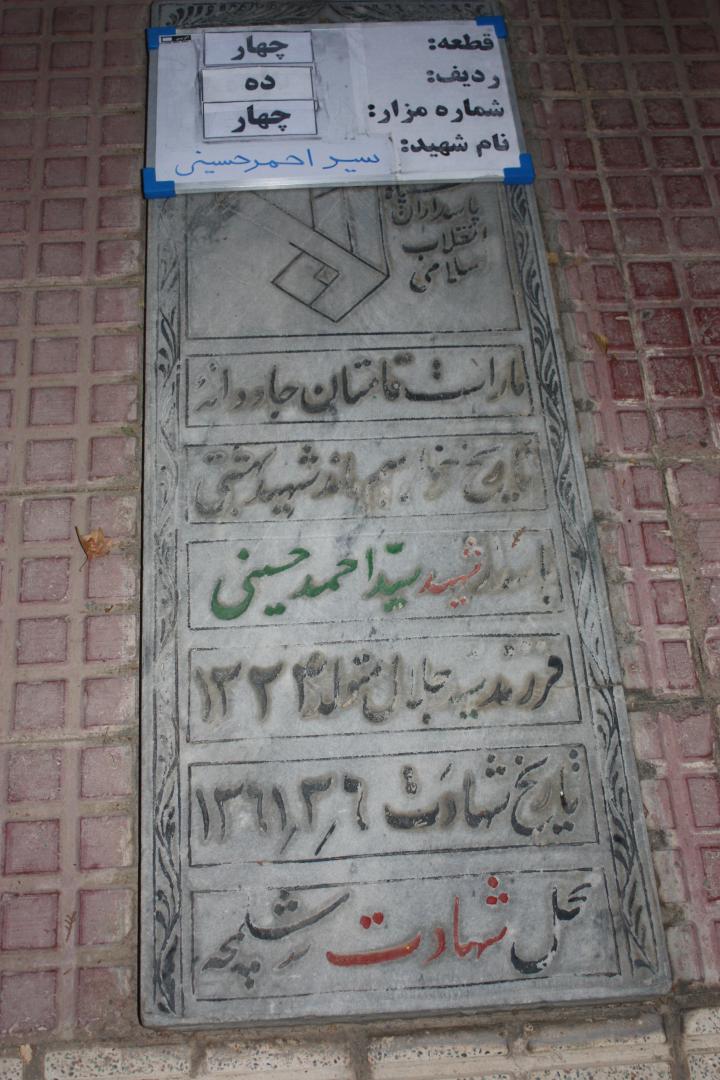 قطعه: چهار
ردیف: ده
شماره مزار: چهار
نام شهید: سید احمد حسینی
پاسداران
انقلاب
اسلامی
ما راست قامتان جاودانه
تاریخ خواهیم ماند شهید بهشتی
پاسدار شهید سیّد احمد حسینی
فرزند سید جلال متولد ۱۳۲۴
تاریخ شهادت ۱۳۶۱٫۳٫۶
محل شهادت شلمچه